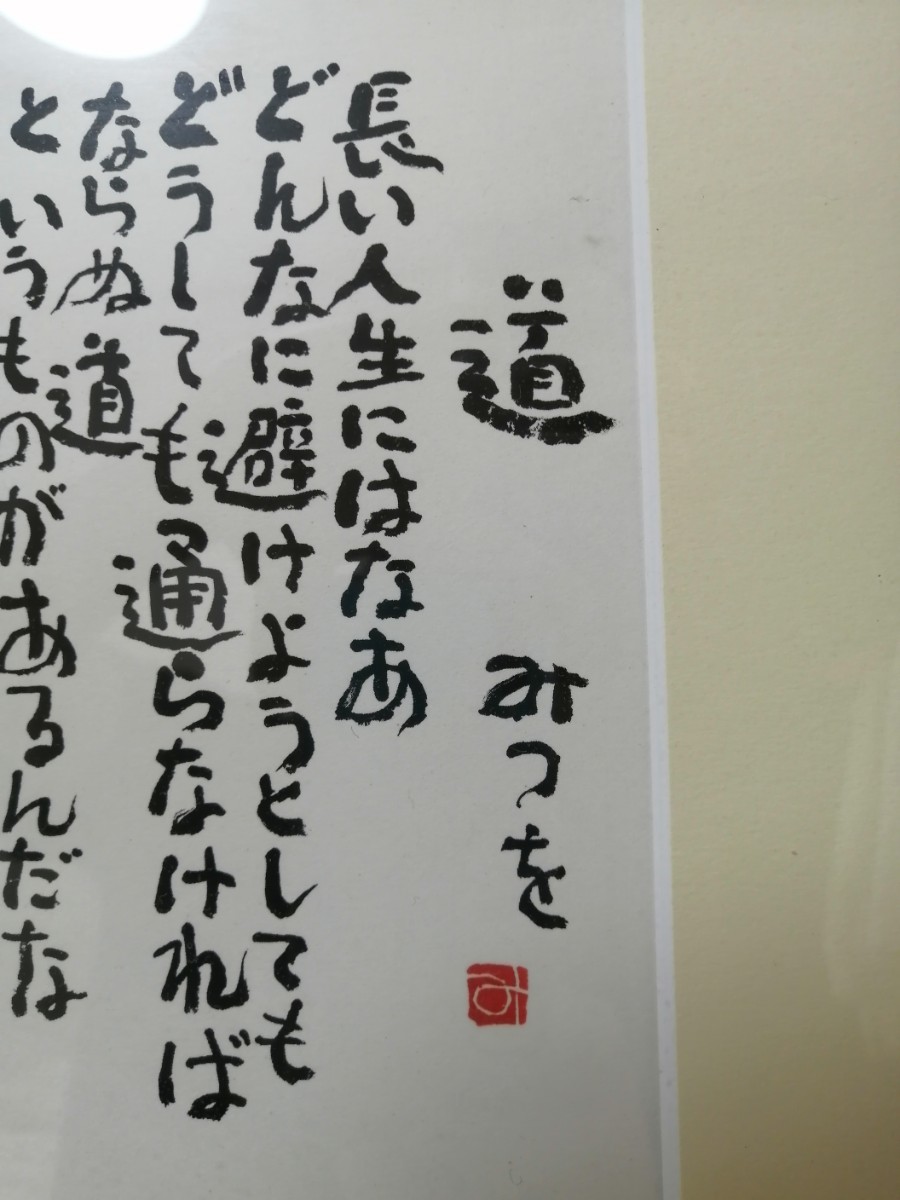 道 みつを
み
長い人生にはなあ
どんなに避けようとしても
どうしても通らなければ
ならぬ道
というものがあるんだな